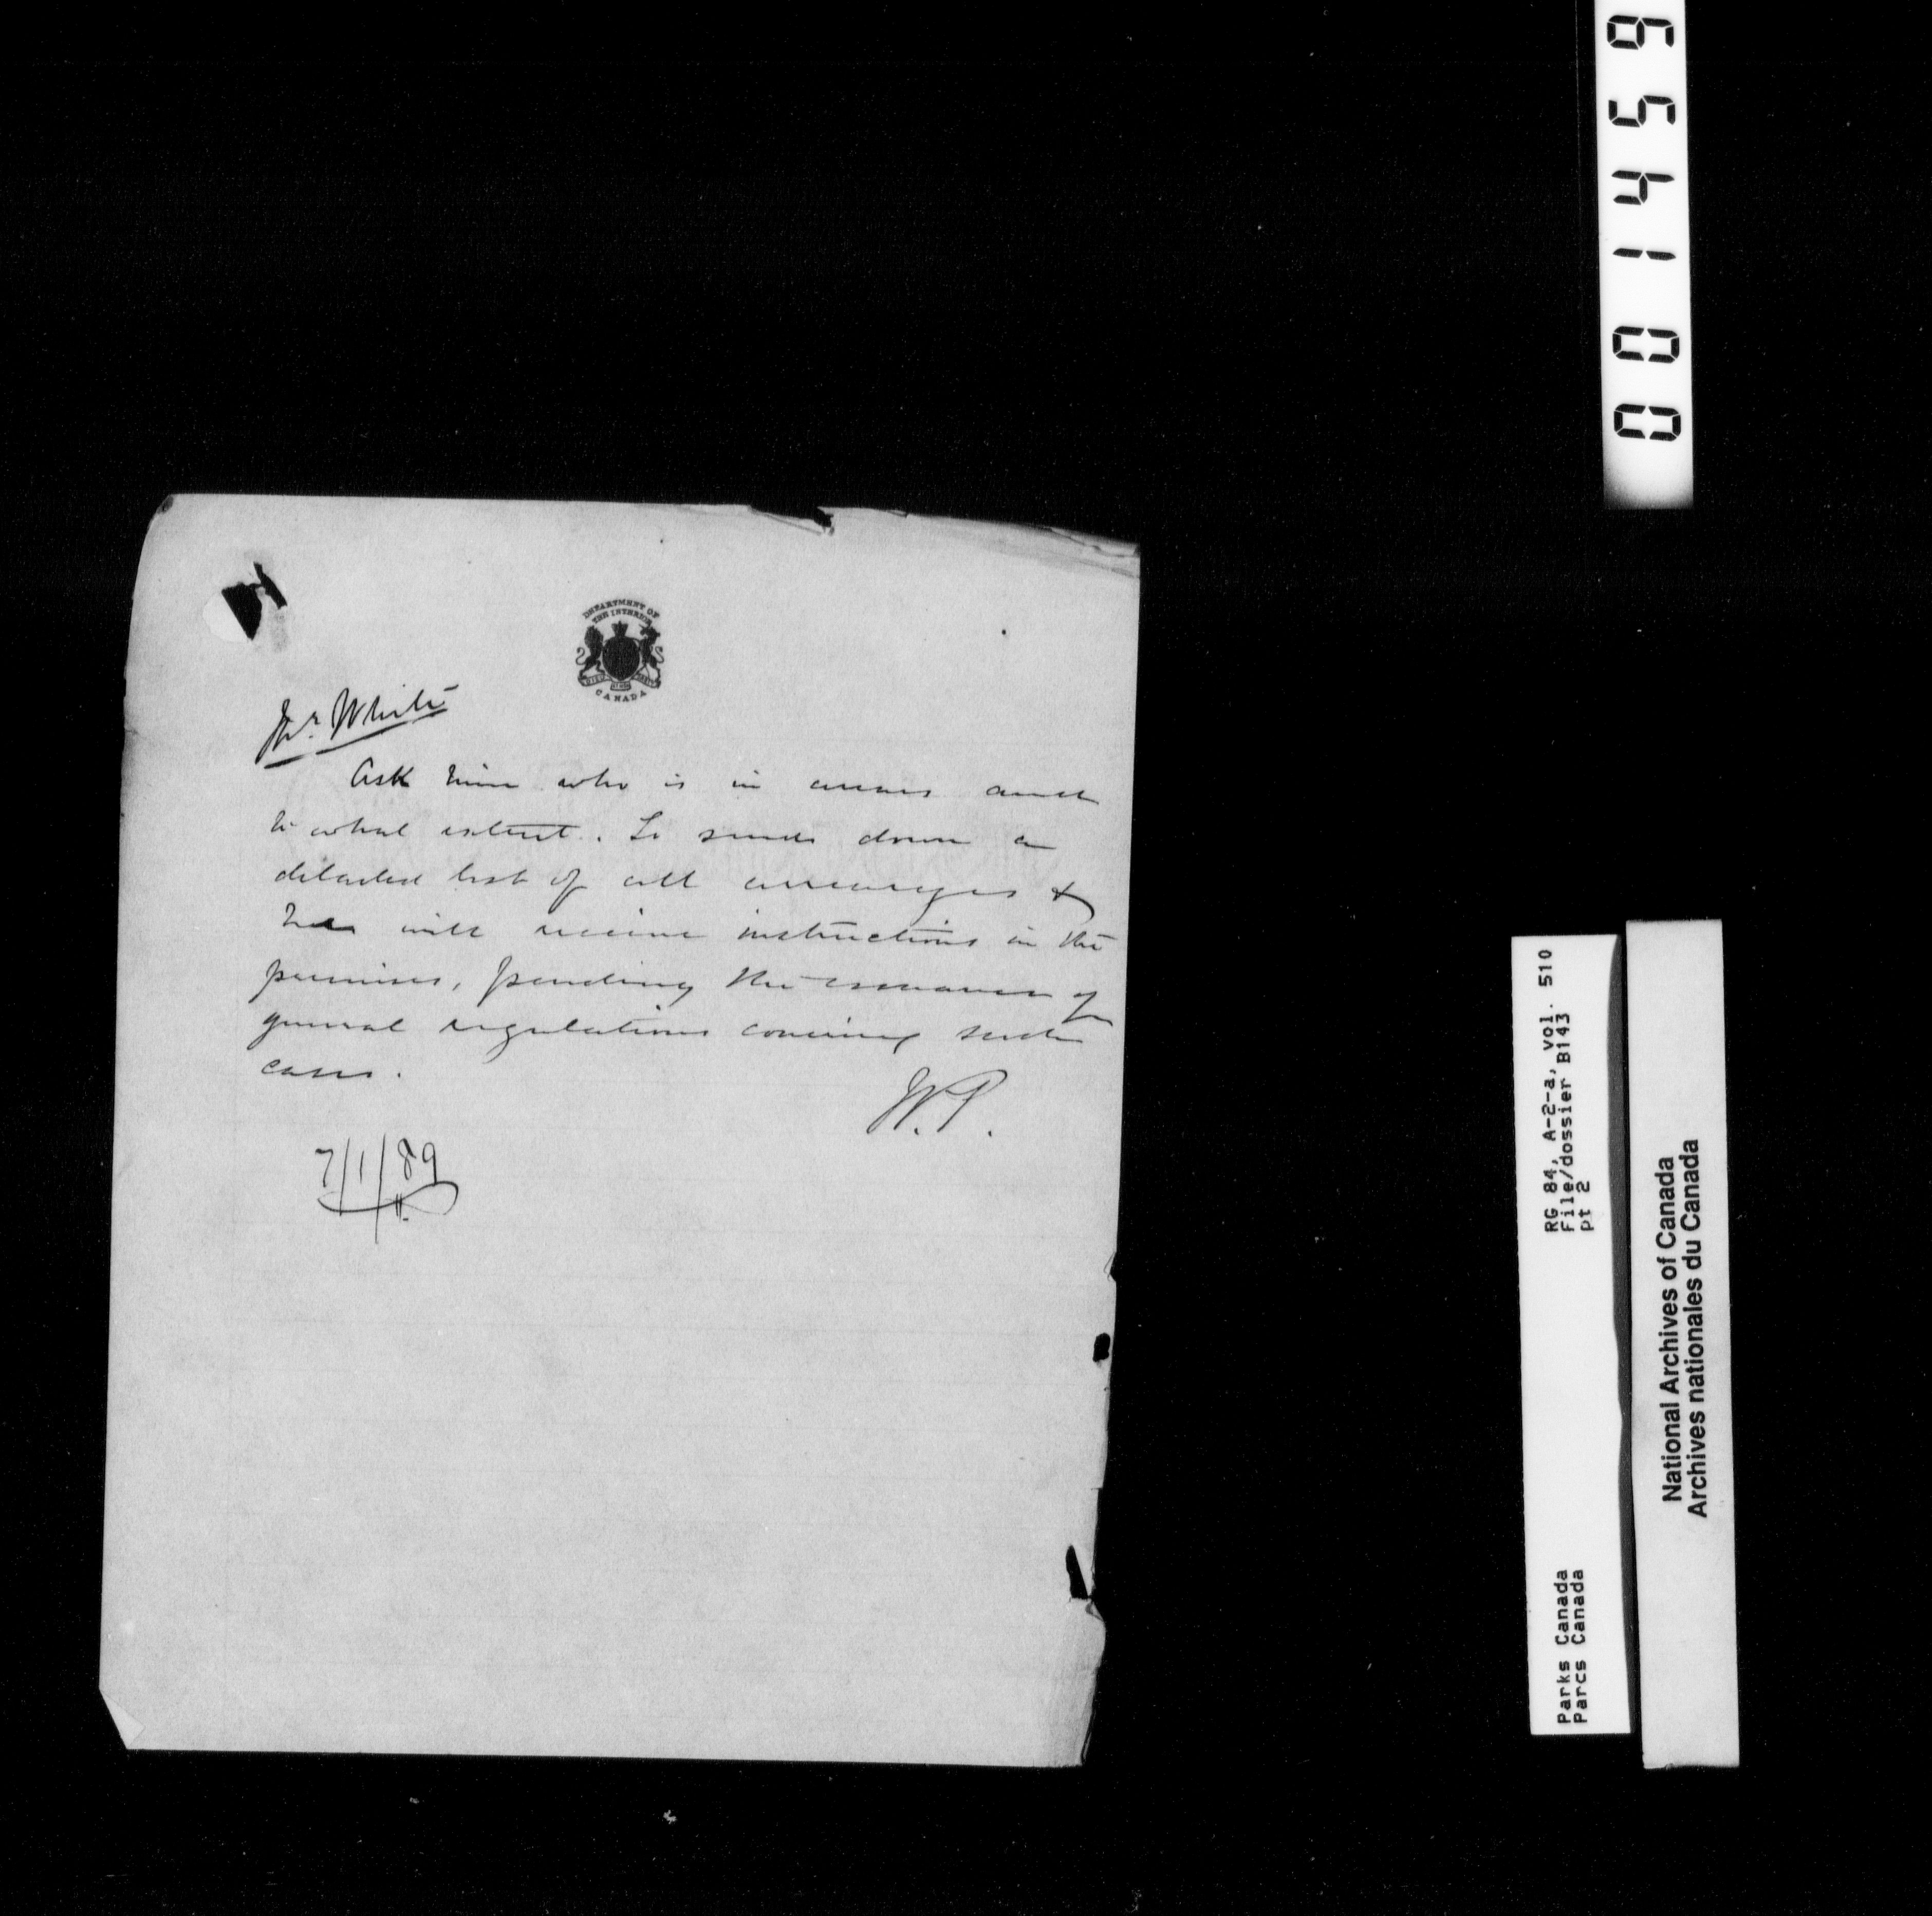 DEPARTMENT OF
THE INTERIOR
CANADA
Mr. White
Ask him who is in arrears and
to what extent. To send down a
detailed list of all arrearages &
he will receive instructions in the
premises, pending the issuance of
general regulations covering such
cases.
W.P.
7/1/89
001459
RG 84, A-2-a, vol. 510
File/dossier B143
pt 2
Parks Canada
Parcs Canada
National Archives of Canada
Archives nationales du Canada